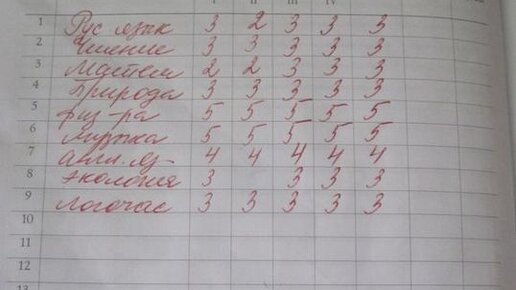 I II III IV
1 Рус язык 3 2 3 3 3
2 Чтение 3 3 3 3 3
3 Матем 2 2 3 3 3
4 Природа 3 3 3 3 3
5 физ-ра 5 5 5 5 5
6 музыка 5 5 5 5 5
7 англ. яз- 4 4 4 4 4
8 экология 3 3 3 3
9 логочас 3 3 3 3 3
10
11
12
13